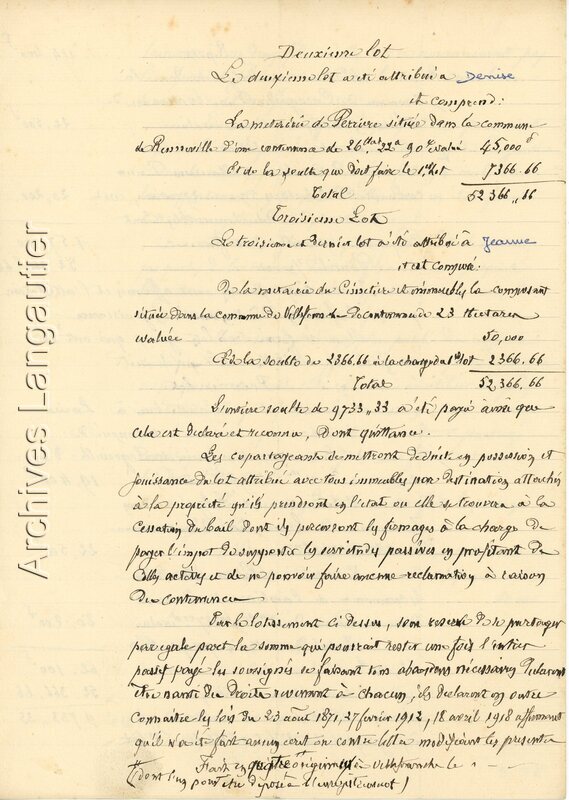 Deuxieme lot
Le deuxieme lot a été attribué a Denise
et comprend :
La metairie de Perriere située dans la commune
de Renneville d'une contenance de 26 Htas 22a 90 Evalué 45,000 f
Et de la soulte que doit faire le 1er lot 7366.66
Total 52366,,66
Troisieme Lot
Le troisieme et dernier lot a été attribué à Jeanne
et est composé :
De la metairie du Cimetiere et immeubles la composant
située dans la commune de Villefranche de contenance de 23 Hectares
evaluée 50,000
Et de la soulte de 2366.66 à la charge du 1er lot 2366.66
Total 52366,66
L'entière soulte de 9733,,33 a été payé ainsi que
cela est declaré et reconnu, Dont quittance.
Les copartageants se mettront de suite en possession et
jouissance du lot attribué avec tous immeubles par destination attachés
à la propriété qu'ils prendront en l'etat ou elle se trouvera à la
Cessation du bail dont ils percevront les fermages à la charge de
payer l'impot de supporter les servitudes passives en profitant de
Celles actives et de ne pouvoir faire aucune reclamation à raison
De contenance
Par le lotissement ci dessus, sous reserve de partager
par egale part la somme qui pourrait rester une fois l'entier
passif payé les soussignés se faisant tous abandons nécessaires Declarent
être nantis des droits revenant à chacun, ils declarent en outre
Connaitre les lois du 23 août 1871, 27 fevrier 1912, 18 avril 1918 affirment
qu'il n'a été fait aucun ecrit ou contre lettre modifiant les presentes
Fait en quatre originaux à Villefranche le
(dont l'un pour être déposé à l'enregistrement)
Archives Langautier